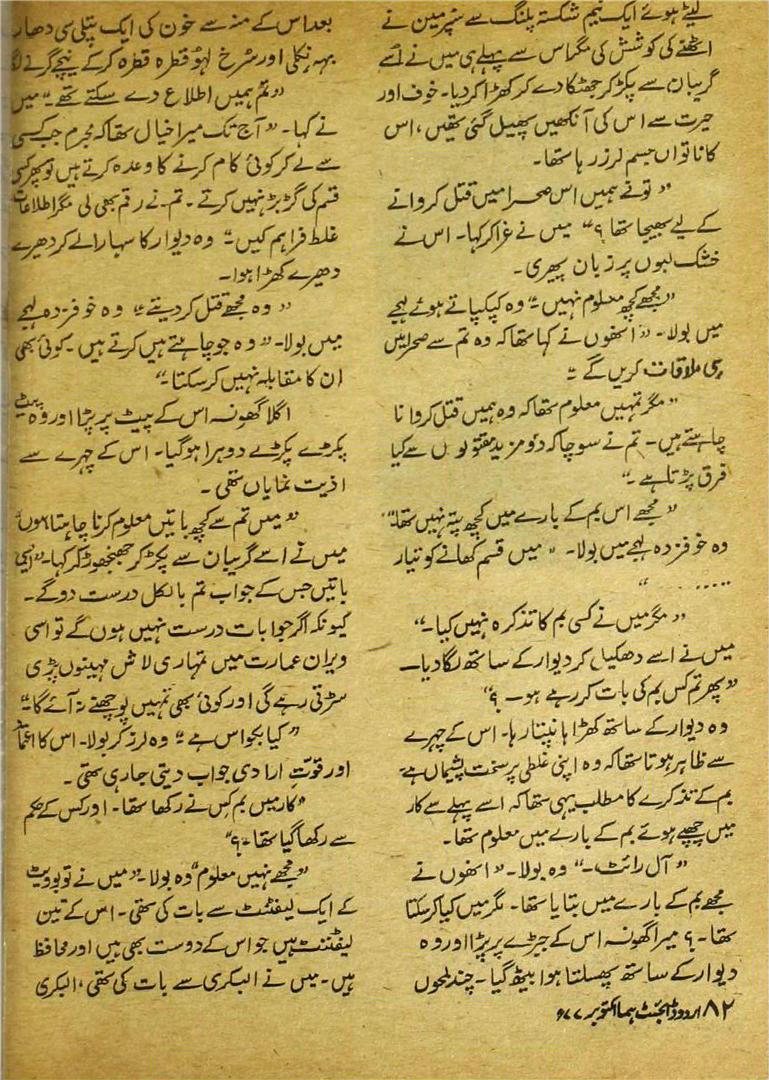 لیٹے ہوئے ایک نیم شکستہ پلنگ سے سنپرمین نے
اٹھنے کی کوشش کی مگر اس سے پہلے ہی میں نے اُسے
گریبان سے پکڑ کر جھٹکا دے کر کھڑا کر دیا۔ خوف اور
حیرت سے اس کی آنکھیں پھیل گئی تھیں، اس
کا ناتواں جسم لرز رہا تھا۔
”تو نے ہمیں اس صحرا میں قتل کروانے
کے لیے بھیجا تھا؟“ میں نے غرا کر کہا۔ اس نے
خشک لبوں پر زبان پھیری۔
”مجھے کچھ معلوم نہیں۔“ وہ کپکپاتے ہوئے لہجے
میں بولا۔ ”انھوں نے کہا تھا کہ وہ تم سے صحرا میں
ہی ملاقات کریں گے۔“
”مگر تمہیں معلوم تھا کہ وہ ہمیں قتل کروانا
چاہتے ہیں۔ تم نے سوچا کہ دو مزید مقتولوں سے کیا
فرق پڑتا ہے۔“
”مجھے اس بم کے بارے میں کچھ پتہ نہیں تھا۔“
وہ خوفزدہ لہجے میں بولا۔ ”میں قسم کھانے کو تیار
۔۔۔۔۔۔“
”مگر میں نے کسی بم کا تذکرہ نہیں کیا۔“
میں نے اسے دھکیل کر دیوار کے ساتھ لگا دیا۔
”پھر تم کس بم کی بات کر رہے ہو۔؟“
وہ دیوار کے ساتھ کھڑا ہانپتا رہا۔ اس کے چہرے
سے ظاہر ہوتا تھا کہ وہ اپنی غلطی پر سخت پشیماں ہے۔
بم کے تذکرے کا مطلب یہی تھا کہ اسے پہلے سے کار
میں چھپے ہوئے بم کے بارے میں معلوم تھا۔
”آل رائٹ۔“ وہ بولا۔ ”انھوں نے
مجھے بم کے بارے میں بتایا تھا۔ مگر میں کیا کر سکتا
تھا۔؟ میرا گھونسہ اس کے جبڑے پر پڑا اور وہ
دیوار کے ساتھ پھسلتا ہوا بیٹھ گیا۔ چند لمحوں
بعد اس کے منہ سے خون کی ایک پتلی سی دھار
بہہ نکلی اور سرخ لہو قطرہ قطرہ کر کے نیچے گرنے لگا
”تم ہمیں اطلاع دے سکتے تھے۔“ میں
نے کہا۔ ”آج تک میرا خیال تھا کہ مجرم جب کسی
سے لے کر کوئی کام کرنے کا وعدہ کرتے ہیں تو پھر کسی
قسم کی گڑبڑ نہیں کرتے۔ تم نے رقم بھی لی مگر اطلاعات
غلط فراہم کیں۔“ وہ دیوار کا سہارا لے کر دھیرے
دھیرے کھڑا ہوا۔
”وہ مجھے قتل کر دیتے۔“ وہ خوفزدہ لہجے
میں بولا۔ ”وہ جو چاہتے ہیں کرتے ہیں۔ کوئی بھی
ان کا مقابلہ نہیں کر سکتا۔“
اگلا گھونسہ اس کے پیٹ پر پڑا اور وہ پیٹ
پکڑے پکڑے دوہرا ہو گیا۔ اس کے چہرے سے
اذیت نمایاں تھی۔
”میں تم سے کچھ باتیں معلوم کرنا چاہتا ہوں“
میں نے اسے گریبان سے پکڑ کر جھنجھوڑ کر کہا۔ ”ایسی
باتیں جس کے جواب تم بالکل درست دو گے۔
کیونکہ اگر جوابات درست نہیں ہوں گے تو اسی
ویران عمارت میں تمہاری لاش مہینوں پڑی
سڑتی رہے گی اور کوئی بھی تمہیں پوچھنے نہ آئے گا۔“
”کیا بکواس ہے۔“ وہ لرز کر بولا۔ اس کا اعتماد
اور قوتِ ارادی جواب دیتی جا رہی تھی۔
”کار میں بم کس نے رکھا تھا۔ اور کس کے حکم
سے رکھا گیا تھا۔؟“
”مجھے نہیں معلوم“ وہ بولا۔ ”میں نے تو بوویٹ
کے ایک لیفٹنٹ سے بات کی تھی۔ اس کے تین
لیفٹننٹ ہیں جو اس کے دوست بھی ہیں اور محافظ
ہیں۔ میں نے البکری سے بات کی تھی، البکری
۸۲ اردو ڈائجسٹ ہما اکتوبر ۷۷ء